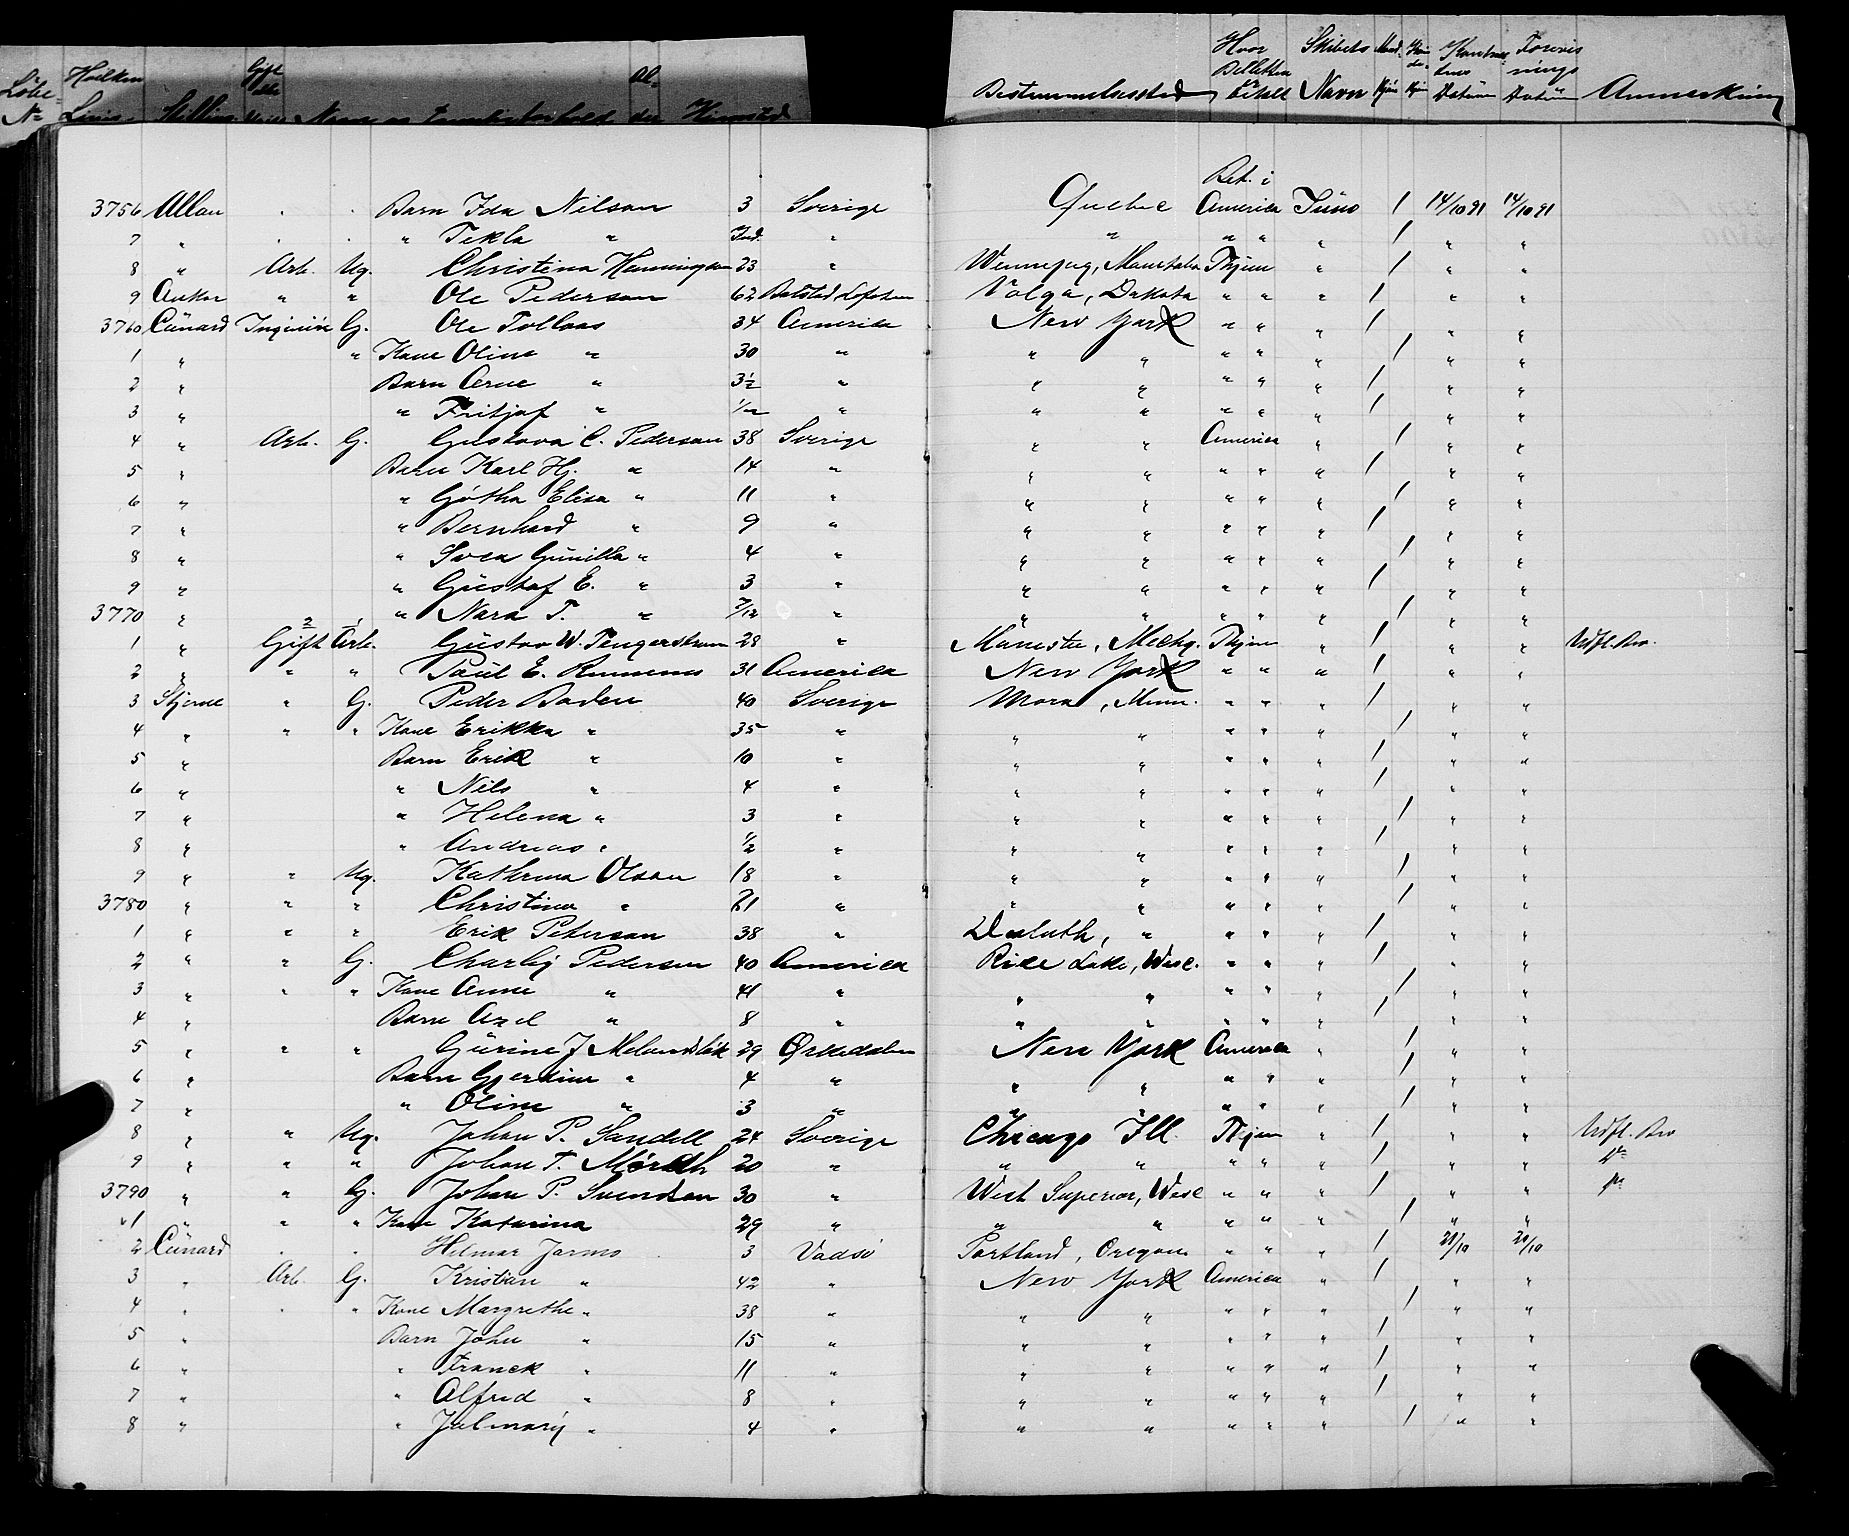 Löbe- No Hvilken Linie Stilling Gift Navn og Familieforhold Al- der Hjemsted Bestemmelsessted Hvor Billetten er betalt Skibets Navn Mand- kjön Kvin- de- kjön Kontrak- tens Datum Forevis- nings Datum Anmerkning
3756 Allan " " Barn Ida Nilson 3 Sverige Quebec Bet. i America Juno 1 14/10 91 14/10 91
7 " " " " Tekla " " " " " " 1 " "
8 " Arb. Ug. Christina Henningsen 23 " Thjem " 1 " "
9 Ankor " " Ole Pederson 62 Balstad Lofoten Volga, Dakota " " " 1 " "
3760 Cunard Ingeniör G. Ole Tollaas 34 America New York " " " 1 " "
1 " " Kone Oline " 30 " " " " " " 1 " "
2 " Barn Arne " 3½ " " " " " " 1 " "
3 " " Fritjof " 1/12 " " " " " " 1 " "
4 " Arb. G. Gustava C. Pederson 38 Sverige " " America " 1 " "
5 " Barn Karl Hj. " 14 " " " " " " 1 " "
6 " " Götha Elisa " 11 " " " " " " 1 " "
7 " " Bernhard " 9 " " " " " " 1 " "
8 " " Svea Gunilla " 4 " " " " " " 1 " "
9 " " Gustaf E. " 3 " " " " " " 1 " "
3770 " " Nara T. " 7/12 " " " " " " 1 " "
1 " Gift 2 Arb. 1 Gustav W. Tengerstrom 28 " Manistee, Michg. Thjem " 1 " " Udfl. Bev.
2 " " " Paul E. 31 America New York " " " 1 " "
3 Stjerne " G. Peder Boden 40 Sverige Mora, Minn. " " " 1 " "
4 " " " Kone Erikka " 35 " " " " " " 1 " "
5 " Barn Erik " 10 " " " " " " 1 " "
6 " " Nils " 4 " " " " " " 1 " "
7 " " Helena " 3 " " " " " " 1 " "
8 " " Andreas " ½ " " " " " " 1 " "
9 " " Ug. Kathrina Olson 18 " " " " " " 1 " "
3780 " " " Christina " 21 " " " " " " 1 " "
1 " " " Erik Peterson 38 " Duluth, " " " " 1 " "
2 " " G. Charley Pederson 40 America Rice Lake, Wisc. " " " 1 " "
3 " " " Kone Anne " 41 " " " " " " 1 " "
4 " Barn Axel " 8 " " " " " " 1 " "
5 " " " Gurine J 29 Ørkedalen New York America " 1 " "
6 " Barn Gjertine " 4 " " " " " " 1 " "
7 " " Oline " 3 " " " " " " 1 " "
8 " " Ug. Johan P. Sandell 24 Sverige Chicago Ill. Thjem " 1 " " Udfl. Bev
9 " " " Johan T. 20 " " " " " " 1 " " do
3790 " " G. Johan P. Svendson 30 " West Superior, Wisc " " " 1 " " do
1 " " " Kone Katarina 29 " " " " " " 1 " "
2 Cunard " " Helmar Jarmo 3 Vadsö Portland, Oregon " " " 1 20/10 20/10
3 " Arb. G. Kristian " 42 " New York America " 1 " "
4 " " " Kone Margrethe " 38 " " " " " " 1 " "
5 " Barn John " 15 " " " " " " 1 " "
6 " " Franck " 11 " " " " " " 1 " "
7 " " Alfred " 8 " " " " " " 1 " "
8 " " " 4 " " " " " " 1 " "